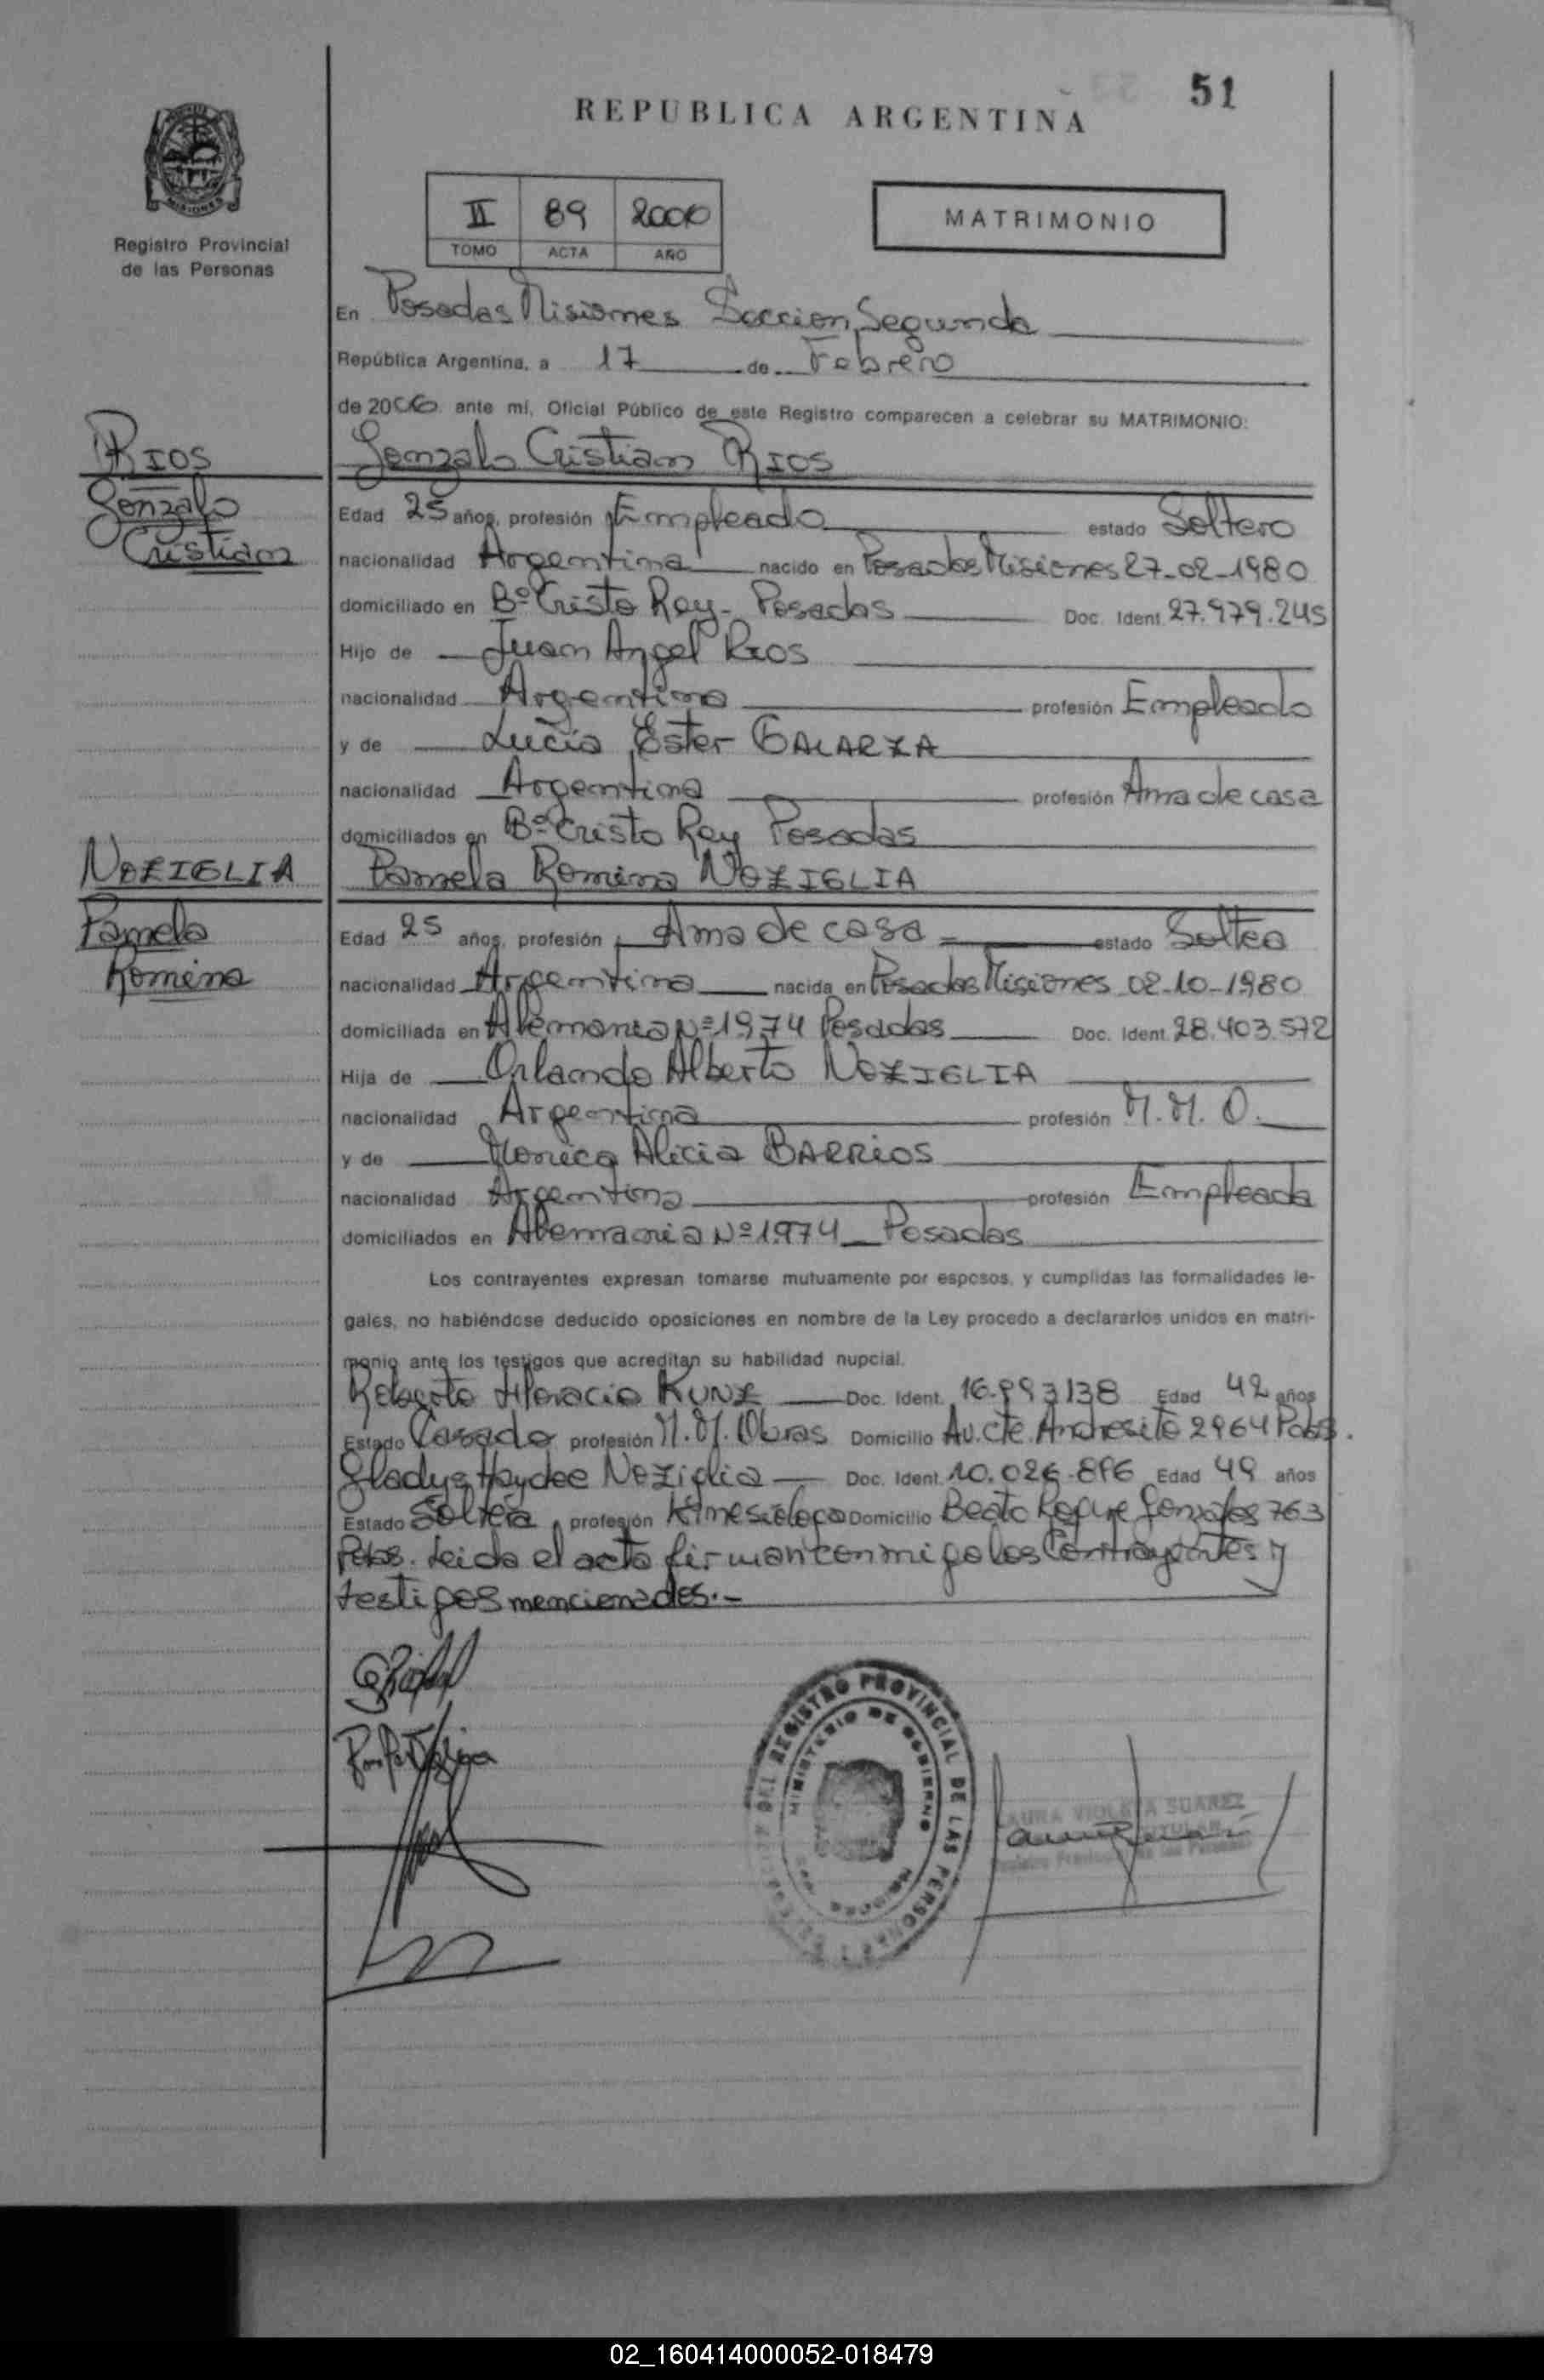 51
REPUBLICA ARGENTINA
MISIONES
Registro Provincial
de las Personas
II 89 2006
TOMO ACTA AÑO
MATRIMONIO
En Posadas Misiones Seccion Segunda
República Argentina, a 17 de Febrero
de 2006 ante mí, Oficial Público de este Registro comparecen a celebrar su MATRIMONIO:
RIOS
Gonzalo
Cristian
Gonzalo Cristian RIOS
Edad 25 años, profesión Empleado estado Soltero
nacionalidad Argentina nacido en Posadas Misiones 27-02-1980
domiciliado en Bº Cristo Rey - Posadas Doc. Ident. 27.979.245
Hijo de Juan Angel RIOS
nacionalidad Argentina profesión Empleado
y de Lucia Ester GALARZA
nacionalidad Argentina profesión Ama de casa
domiciliados en Bº Cristo Rey Posadas
NOZIGLIA
Pamela
Romina
Pamela Romina NOZIGLIA
Edad 25 años, profesión Ama de casa estado Soltea
nacionalidad Argentina nacida en Posadas Misiones 02-10-1980
domiciliada en Alemania Nº 1974 Posadas Doc. Ident. 28.403.572
Hija de Orlando Alberto NOZIGLIA
nacionalidad Argentina profesión M.M.O.
y de Monica Alicia BARRIOS
nacionalidad Argentina profesión Empleada
domiciliados en Alemania Nº 1974 - Posadas
Los contrayentes expresan tomarse mutuamente por esposos, y cumplidas las formalidades le-
gales, no habiéndose deducido oposiciones en nombre de la Ley procedo a declararlos unidos en matri-
monio ante los testigos que acreditan su habilidad nupcial.
Roberto Horacio KUNZ Doc. Ident. 16.993138 Edad 42 años
Estado Casado profesión M.M. Obras Domicilio Av. Cte. Andresito 2964 Pdas.
Gladys Haydee Noziglia Doc. Ident. 10.026.896 Edad 49 años
Estado Soltera profesión Kinesiologa Domicilio Beato Roque Gonzales 763
Pdas. Leida el acta firman conmigo los Contrayentes y
testigos mencionados.-
DEL REGISTRO PROVINCIAL DE LAS PERSONAS
MINISTERIO DE GOBIERNO
LAURA VIOLETA SUAREZ
TITULAR
Registro Provincial de las Personas
02_160414000052-018479